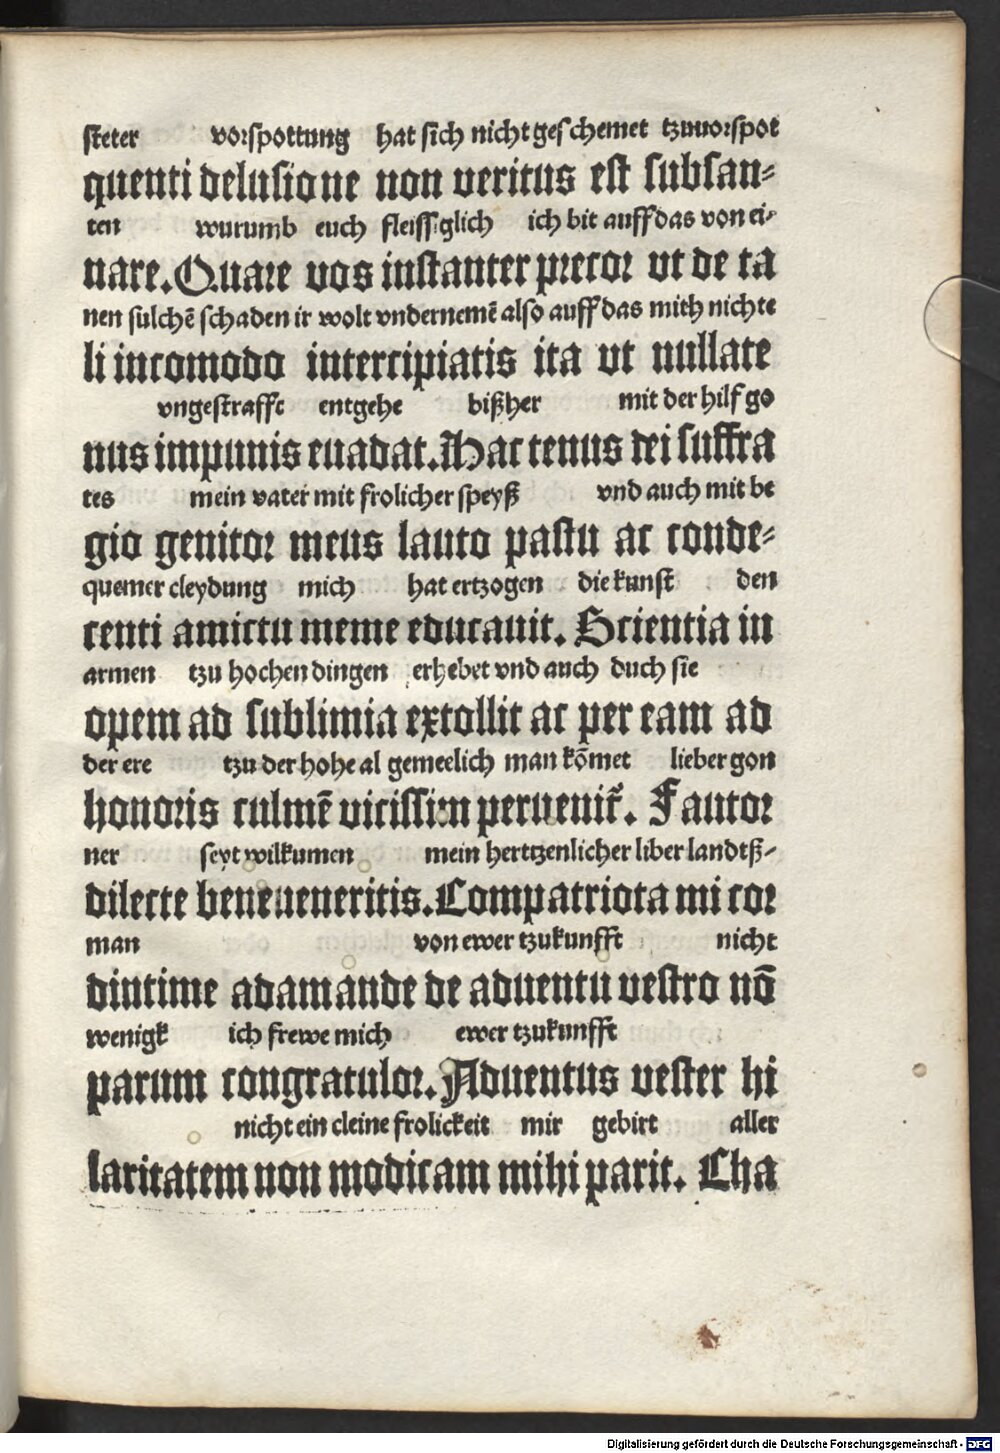 steter vorspottung hat sich nicht geschemet tzuuorspot
quenti delusione non veritus est subsan-
ten wurumb euch fleissiglich ich bit auff das von ei-
nare. Quare vos instanter precor vt de ta
nen sulchē schaden ir wolt vndernemē also auff das mith nichte
li incomodo intercipiatis ita vt nullate
vngestraffe entgehe bißher mit der hilf go
nus impunis euadat. Hac tenus dei suffra
tes mein vater mit frolicher speyß vnd auch mit be
gio genitor meus lauto pastu ac conde-
quemer cleydung mich hat ertzogen die kunst den
centi amictu meme educauit. Scientia in
armen tzu hochen dingen erhebet vnd auch duch sie
opem ad sublimia extollit ac per eam ad
der ere tzu der hohe al gemeelich man kōmet lieber gon
honoris culmē vicissim peruenit̄. Fautor
ner seyt wilkumen mein hertzenlicher liber landtß-
dilecte beneueneritis. Compatriota mi cor
man von ewer tzukunfft nicht
dintime adamande de aduentu vestro nō
wenigk ich frewe mich ewer tzukunfft
parum congratulor. Aduentus vester hi
nicht ein cleine frolickeit mir gebirt aller
laritatem non modicam mihi parit. Cha
Digitalisierung gefördert durch die Deutsche Forschungsgemeinschaft - DFG